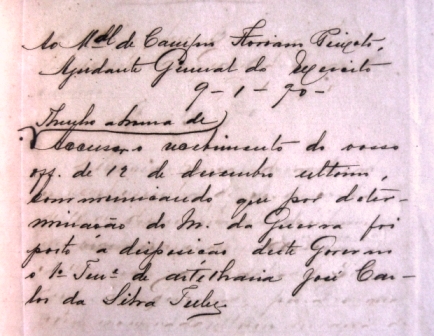 Ao Mal de Campo Floriano Peixoto,
Ajudante General do Exercito
9-1-90-
Tenho a honra de
Accusar o recebimento do vosso
off. de 12 de dezembro ultimo,
communicando que por deter-
minação do M. da Guerra foi
posto a disposição deste Governo
o 1º Tenº de artelharia José Car-
los da Silva Telles